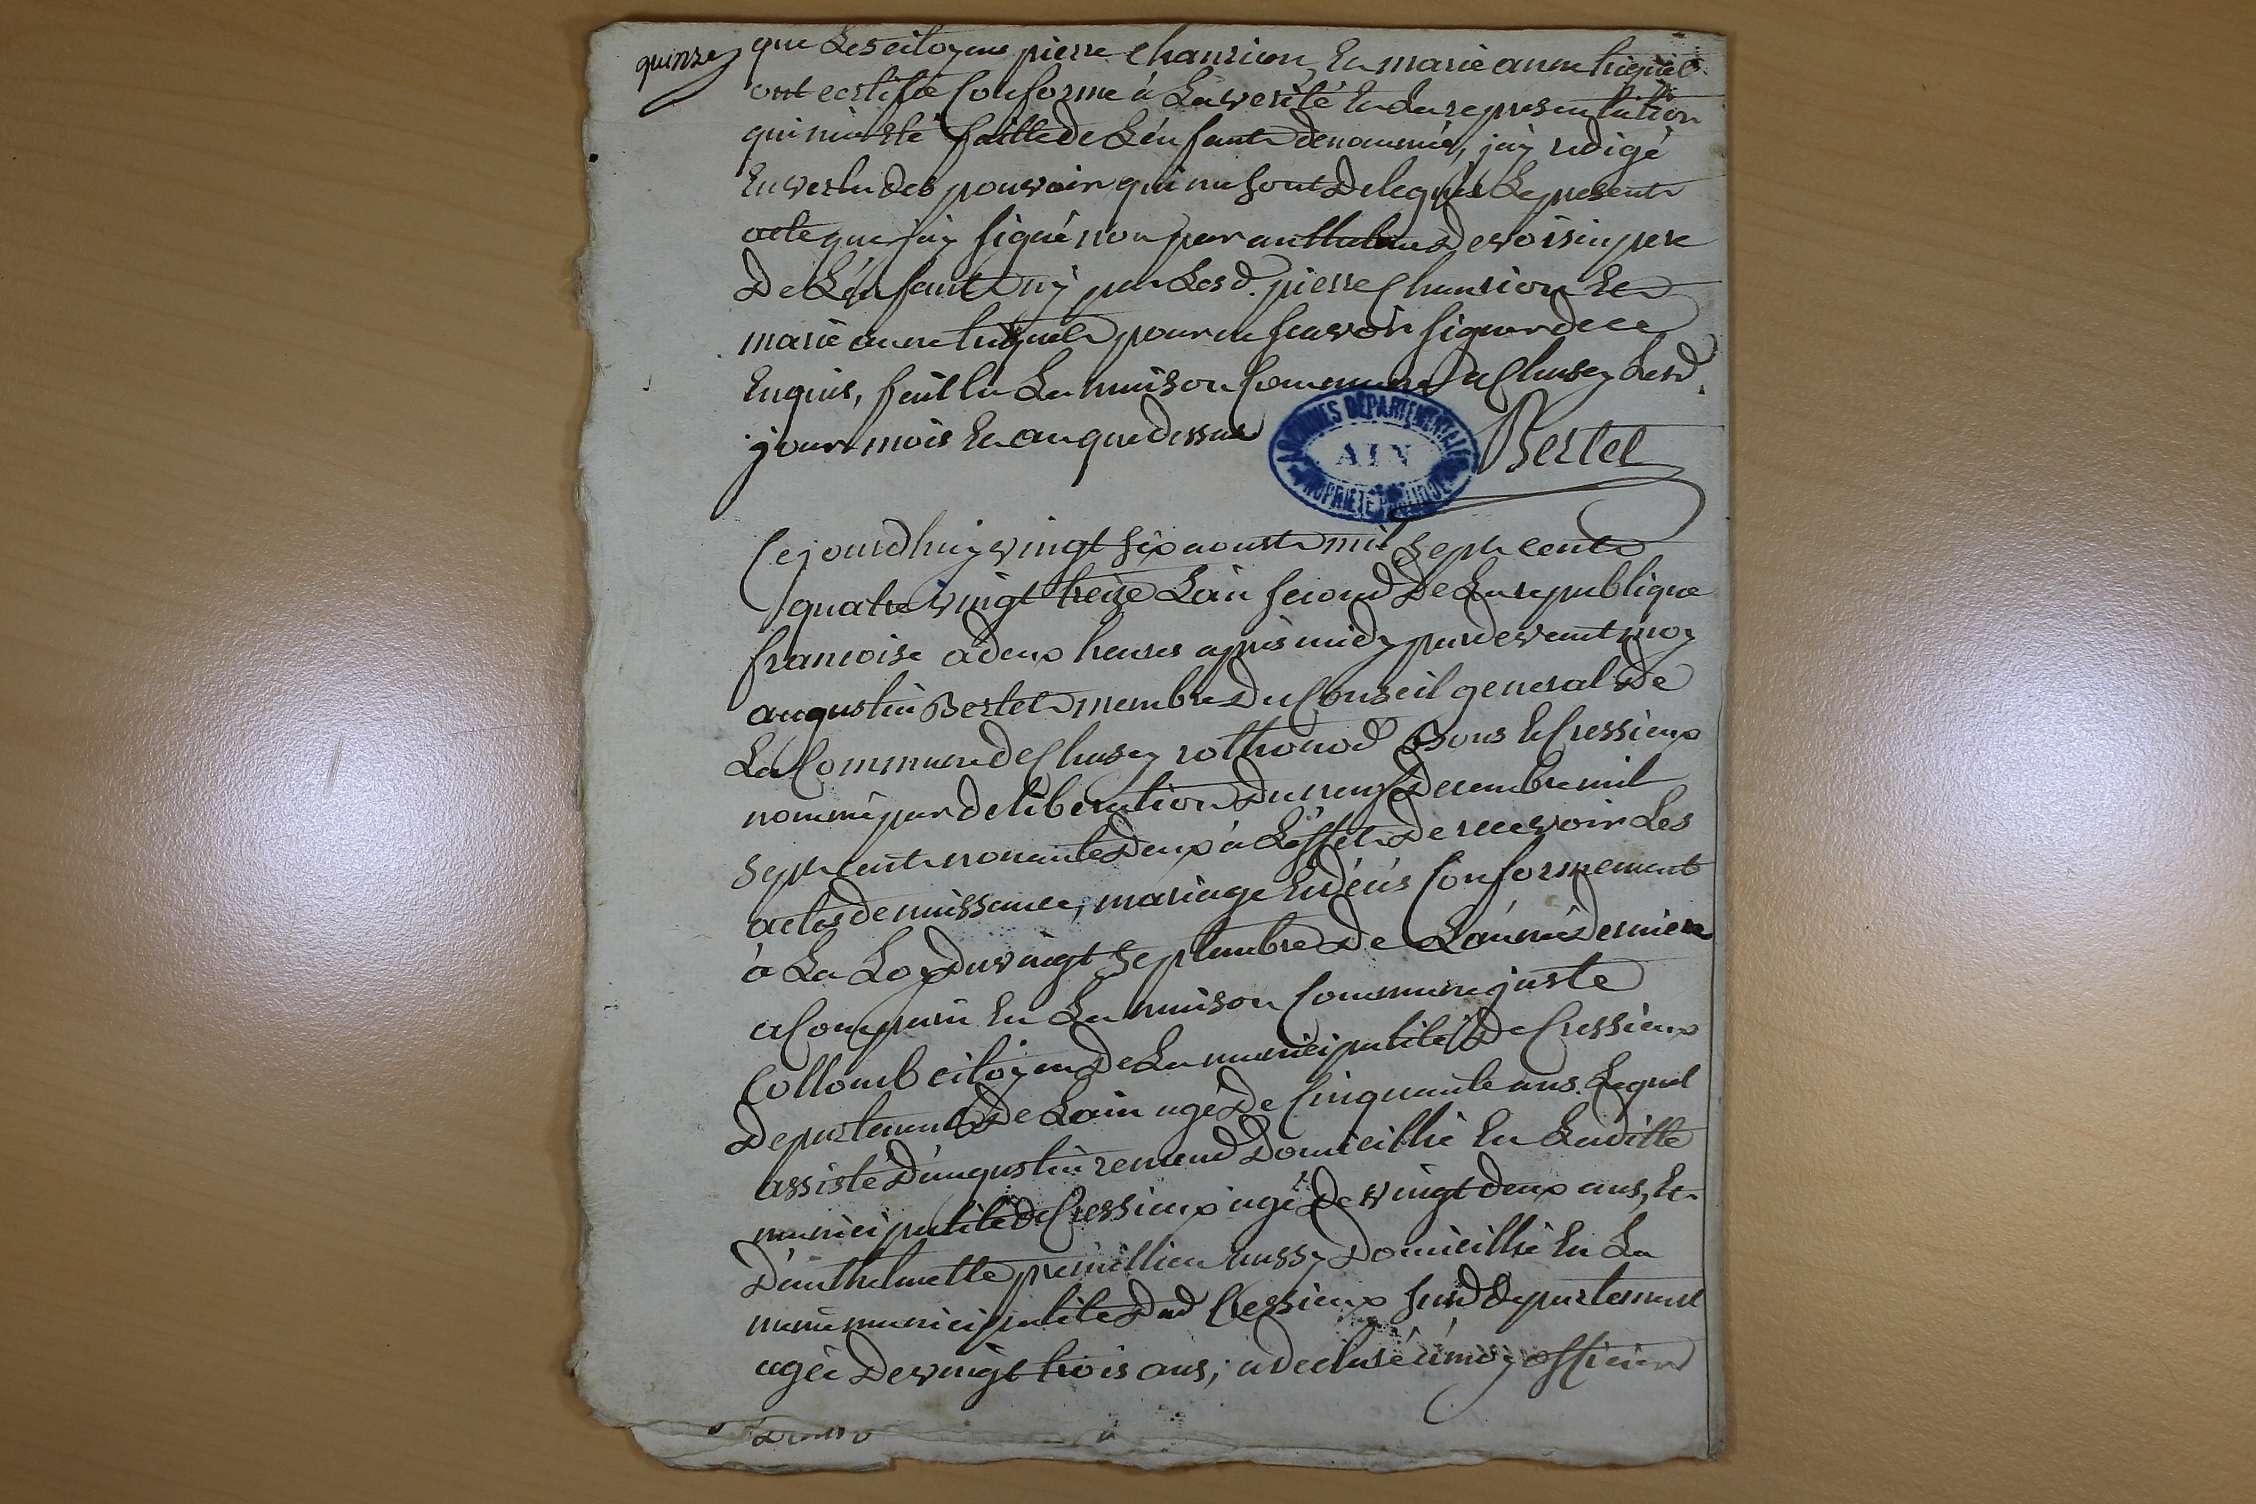 quinze
que Les citoyens pierre Chanrion Et marie anne huguet
ont certifié Conforme à La verité Et du representation
qui m'a eté faitte de L'enfant denommé, j'ay redigé
En vertu des pouvoir qui me sont Delegués Le present
acte que j'ay signé non par anthelme Devoisin pere
De L'enfant ny par Lesd. pierre Chanrion Et
marie anne huguet pour ne scavoir signer de ce
Enquis, fait En La maison Commune de Chasey Lesd.
jour mois Et an que dessus
Bertet
ARCHIVES DÉPARTEMENTALES
AIN
PROPRIÉTÉ PUBLIQUE
Cejourdhuy vingt six aoust mil sept cent
quatre vingt treize L'an second De La republique
francoise à deux heures après midy pardevant moy
augustin Bertet membre du Conseil general De
La Commune de Chasey rothonod Bons Et Cressieux
nommé par deliberation Du neuf Decembre mil
sept cent nonante Deux à L'effet De recevoir Les
actes de naissance, mariage Et décés Conformement
à La Loy du vingt septembre De L'année Derniere
a Comparu En La maison Commune juste
Collomb citoyen De La municipalité De Cressieux
Departement De L'ain agé De Cinquante ans. Lequel
assisté D'augustin remond Domicillié En Laditte
municipalité de Cressieux agé De vingt deux ans, Et
D'anthelmette premillieu aussy Domicillié En La
meme municipalité Dud Cressieux susd Departement
agée De vingt trois ans, a declaré à moy officier